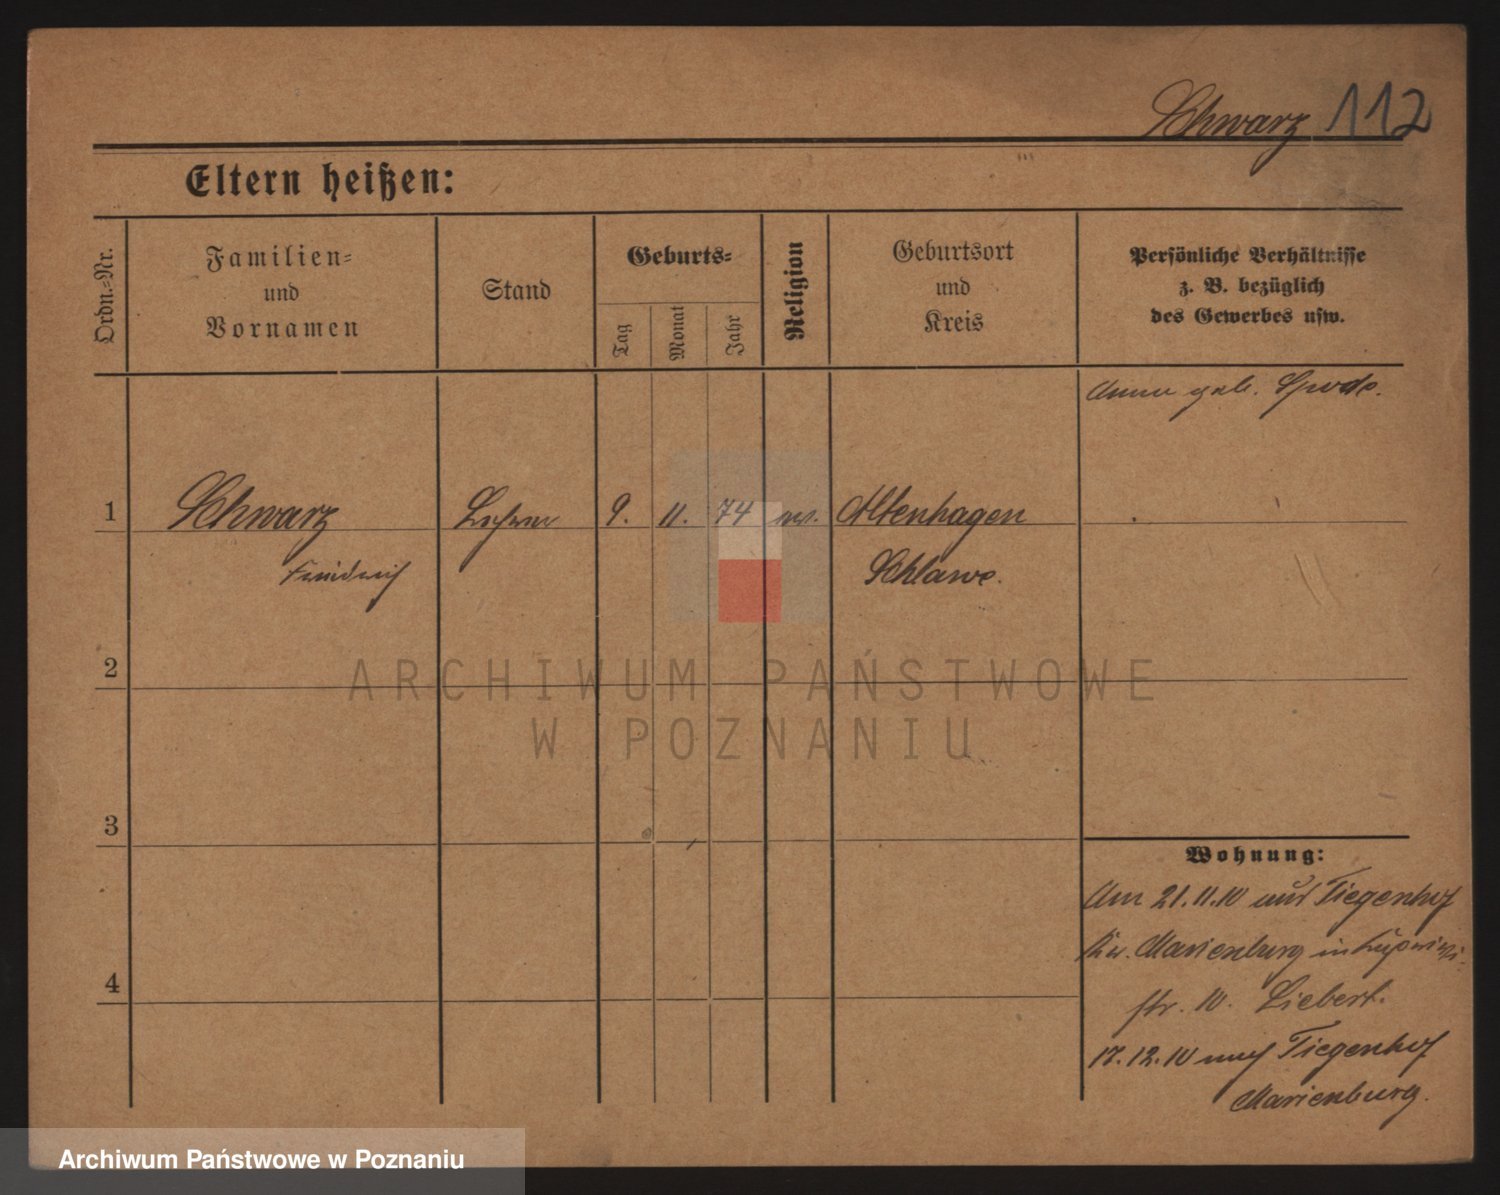 Schwarz 112
Eltern heißen:
Ordn.-Nr.
Familien-
und
Vornamen
Stand
Geburts-
Tag
Monat
Jahr
Religion
Geburtsort
und
Kreis
Persönliche Verhältnisse
z. B. bezüglich
des Gewerbes usw.
Anna geb.
1 Schwarz Lehrer 9. 11. 74 ev. Altenhagen
Friedrich Schlawe.
2
3
4
Wohnung:
Am 21.11.10 aus Tiegenhof
Kr. Marienburg in
str. 10. Liebert.
17.12.10 nach Tiegenhof
Marienburg.
ARCHIWUM PAŃSTWOWE
W POZNANIU
Archiwum Państwowe w Poznaniu